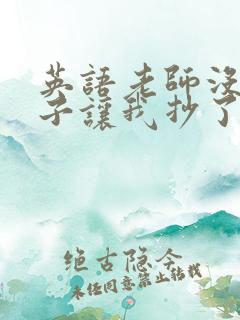 英語老师没
子讓我抄了
绝古隐令
未经同意禁止转载